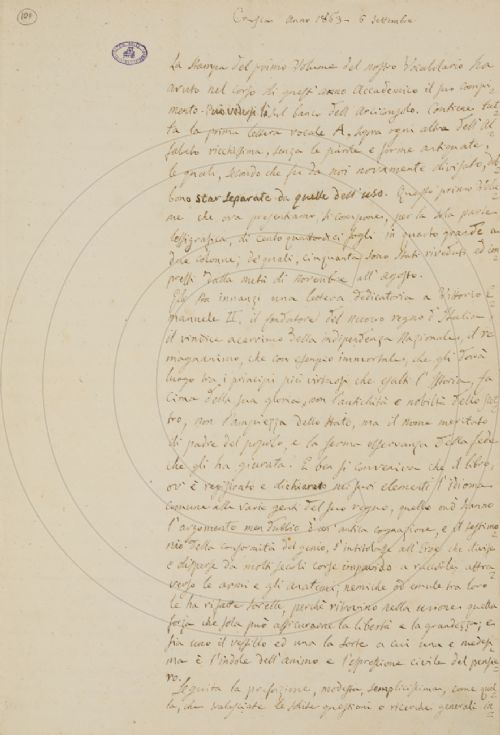 101
Crusca Anno 1863 - 6 settembre
La stampa del primo Volume del nostro Vocabolario ha
avuto nel corso di quest'anno Accademico il suo compi-
mento. Può vedersi là, sul banco dell'Arciconsolo. Contiene tut-
ta la prima lettera vocale A. sopra ogni altra dell'al-
fabeto ricchissima, senza le parole e forme antiquate,
le quali, secondo che fu da noi novamente divisato, deb-
bono star separate da quelle dell'uso. Questo primo volu-
me che ora presentiamo si compone, per la sola parte
lessigrafica, di cento quattordici fogli in quarto grande a
due colonne, de' quali, cinquanta sono stati riveduti ed im-
pressi dalla metà di novembre all'agosto.
Gli sta innanzi una lettera dedicatoria a Vittorio E-
manuele II, il fondatore del nuovo regno d'Italia
il vindice acerrimo della indipendenza Nazionale, il re
magnanimo, che con esempio immortale, che gli darà
luogo tra i principi più virtuosi che esalti l'Istoria, fa
cima della sua gloria, non l'antichità o nobiltà dello scet-
tro, non l'ampiezza dello stato, ma il nome meritato
di padre del popolo, e la ferma osservanza della fede
che gli ha giurata. E ben si conveniva che il libro,
ov'è registrato e dichiarato ne' suoi elementi l'idioma
comune alle varie genti del suo regno, quello ond'hanno
l'argomento men dubbio d'un'antica cognazione, e il testimo-
nio della conformità del genio, s'intitolasse all'Eroe che divise
e disperse da molti secoli corse a raccoglierle attra-
verso le armi e gli nemiche od emule tra loro
le ha rifatte sorelle, perché ritrovino nella unione quella
forza che sola può assicurarne la libertà e la grandezza, e
sia uno il vessillo ed una la sorte a cui una e medesi-
ma è l'indole dell'animo e l'espressione civile del pensie-
ro.
Seguita la prefazione, modesta, semplicissima, come quel-
la, che tralasciate le solite questioni o ricerche generali in-